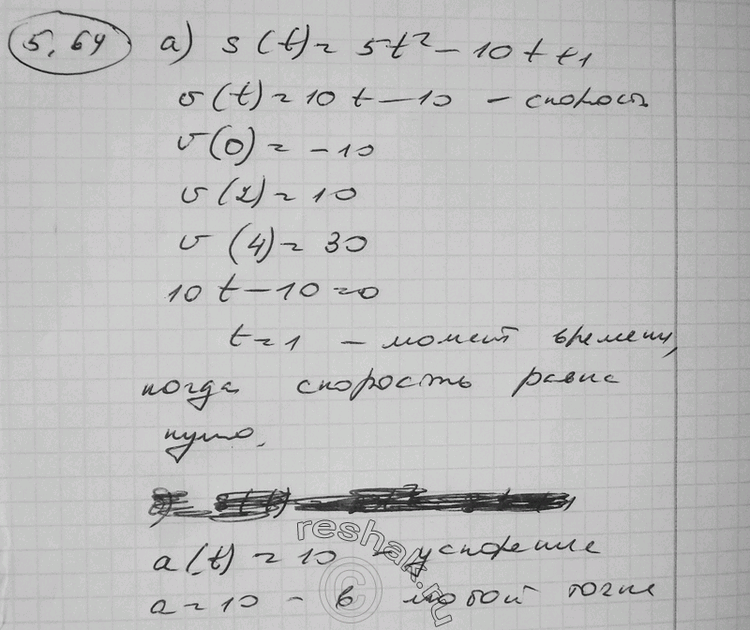 5.64 а) s(t) = 5t² - 10t + 1
v(t) = 10t - 10 - скорость
v(0) = -10
v(2) = 10
v(4) = 30
10t - 10 = 0
t = 1 - момент времени,
когда скорость равна
нулю.
a(t) = 10 - ускорение
a = 10 - в любой точке
reshak.ru
©